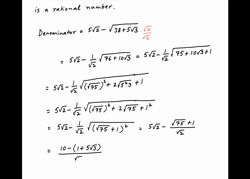 is a rational number.
Denominator = 5√2 - √(38+5√3) √2/√2
= 5√2 - 1/√2 √(76+10√3) = 5√2 - 1/√2 √(75+10√3+1)
= 5√2 - 1/√2 √((√75)² + 2√75 + 1
= 5√2 - 1/√2 √((√75)² + 2√75 + 1²
= 5√2 - 1/√2 √((√75+1)²) = 5√2 - (√75+1)/√2
= (10-(1+5√3))/√